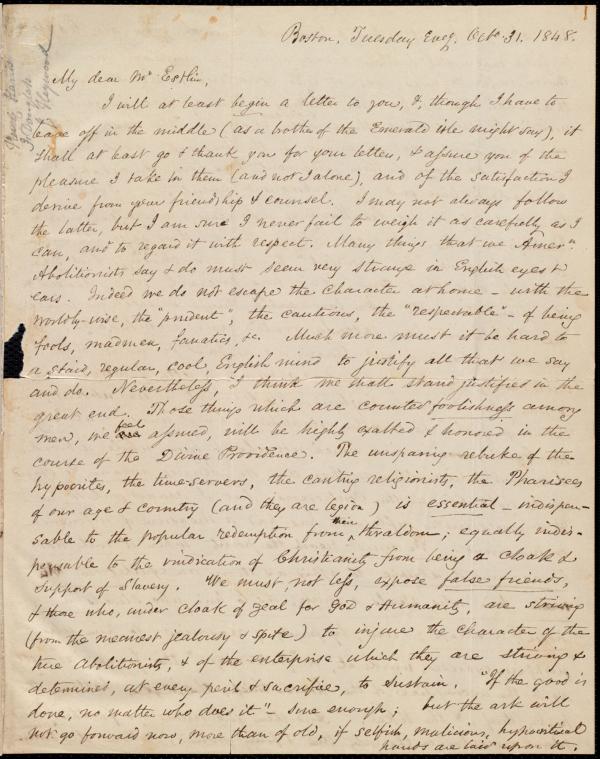 Boston, Tuesday Eveg. Octo. 31. 1848.
My dear Mr Estlin,
I will at least begin a letter to you, &, though I have to
leave off in the middle (as a brother of the Emerald isle might say), it
shall at least go & thank you for your letters, & assure you of the
pleasure I take in them (and not I alone), and of the satisfaction I
derive from your friendship & counsel. I may not always follow
the latter, but I am sure I never fail to weigh it as carefully as I
can, and to regard it with respect. Many things that we Amern.
Abolitionists say & do must seem very strange in English eyes &
ears. Indeed we do not escape the character at home - with the
worldly-wise, the "prudent", the cautious, the "respectable" - of being
fools, madmen, fanatics, &c. Much more must it be hard to
a staid, regular, cool, English mind to justify all that we say
and do. Nevertheless, I think we shall stand justified in the
great end. Those things which are counted foolishness among
men, we feel assured, will be highly exalted & honored in the
course of the Divine Providence. The unsparing rebuke of the
hypocrites, the time-servers, the canting religionists, the Pharisees
of our age & country (and they are legion) is essential - indispen-
sable to the popular redemption from their thraldom; equally indis-
pensable to the vindication of Christianity from being a cloak &
support of Slavery. We must, not less, expose false friends,
& those who, under cloak of zeal for God & Humanity, are striving
(from the meanest jealousy & spite) to injure the character of the
true Abolitionists, & of the enterprise which they are striving &
determined, at every peril & sacrifice, to sustain. "If the good is
done, no matter who does it" - sure enough; but the ark will
not go forward now, more than of old, if selfish, malicious, hypocritical
hands are laid upon it.